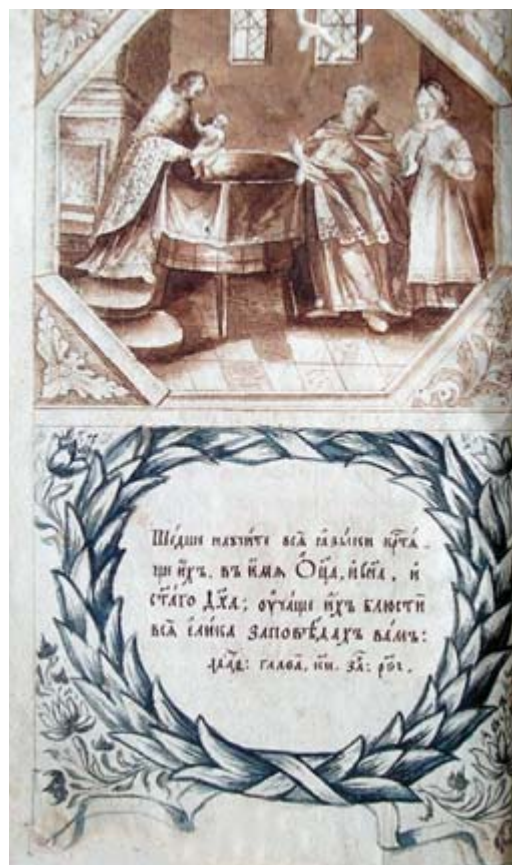 Ше́дше наꙋчи́те всѧ̀ ꙗ҆зы́ки кр҃тѧ́-
ще и҆̀хъ. въ и҆́мѧ Ѻ҆ц҃а̀, и҆ сн҃а, и҆
ст҃а́го Дх҃а; ѹ҆ча́ще и҆̀хъ блюстѝ
всѧ̀ є҆ли́ка заповѣ́дахъ ва́мъ:
глава̀, ки. за҃: рѳ҃і.